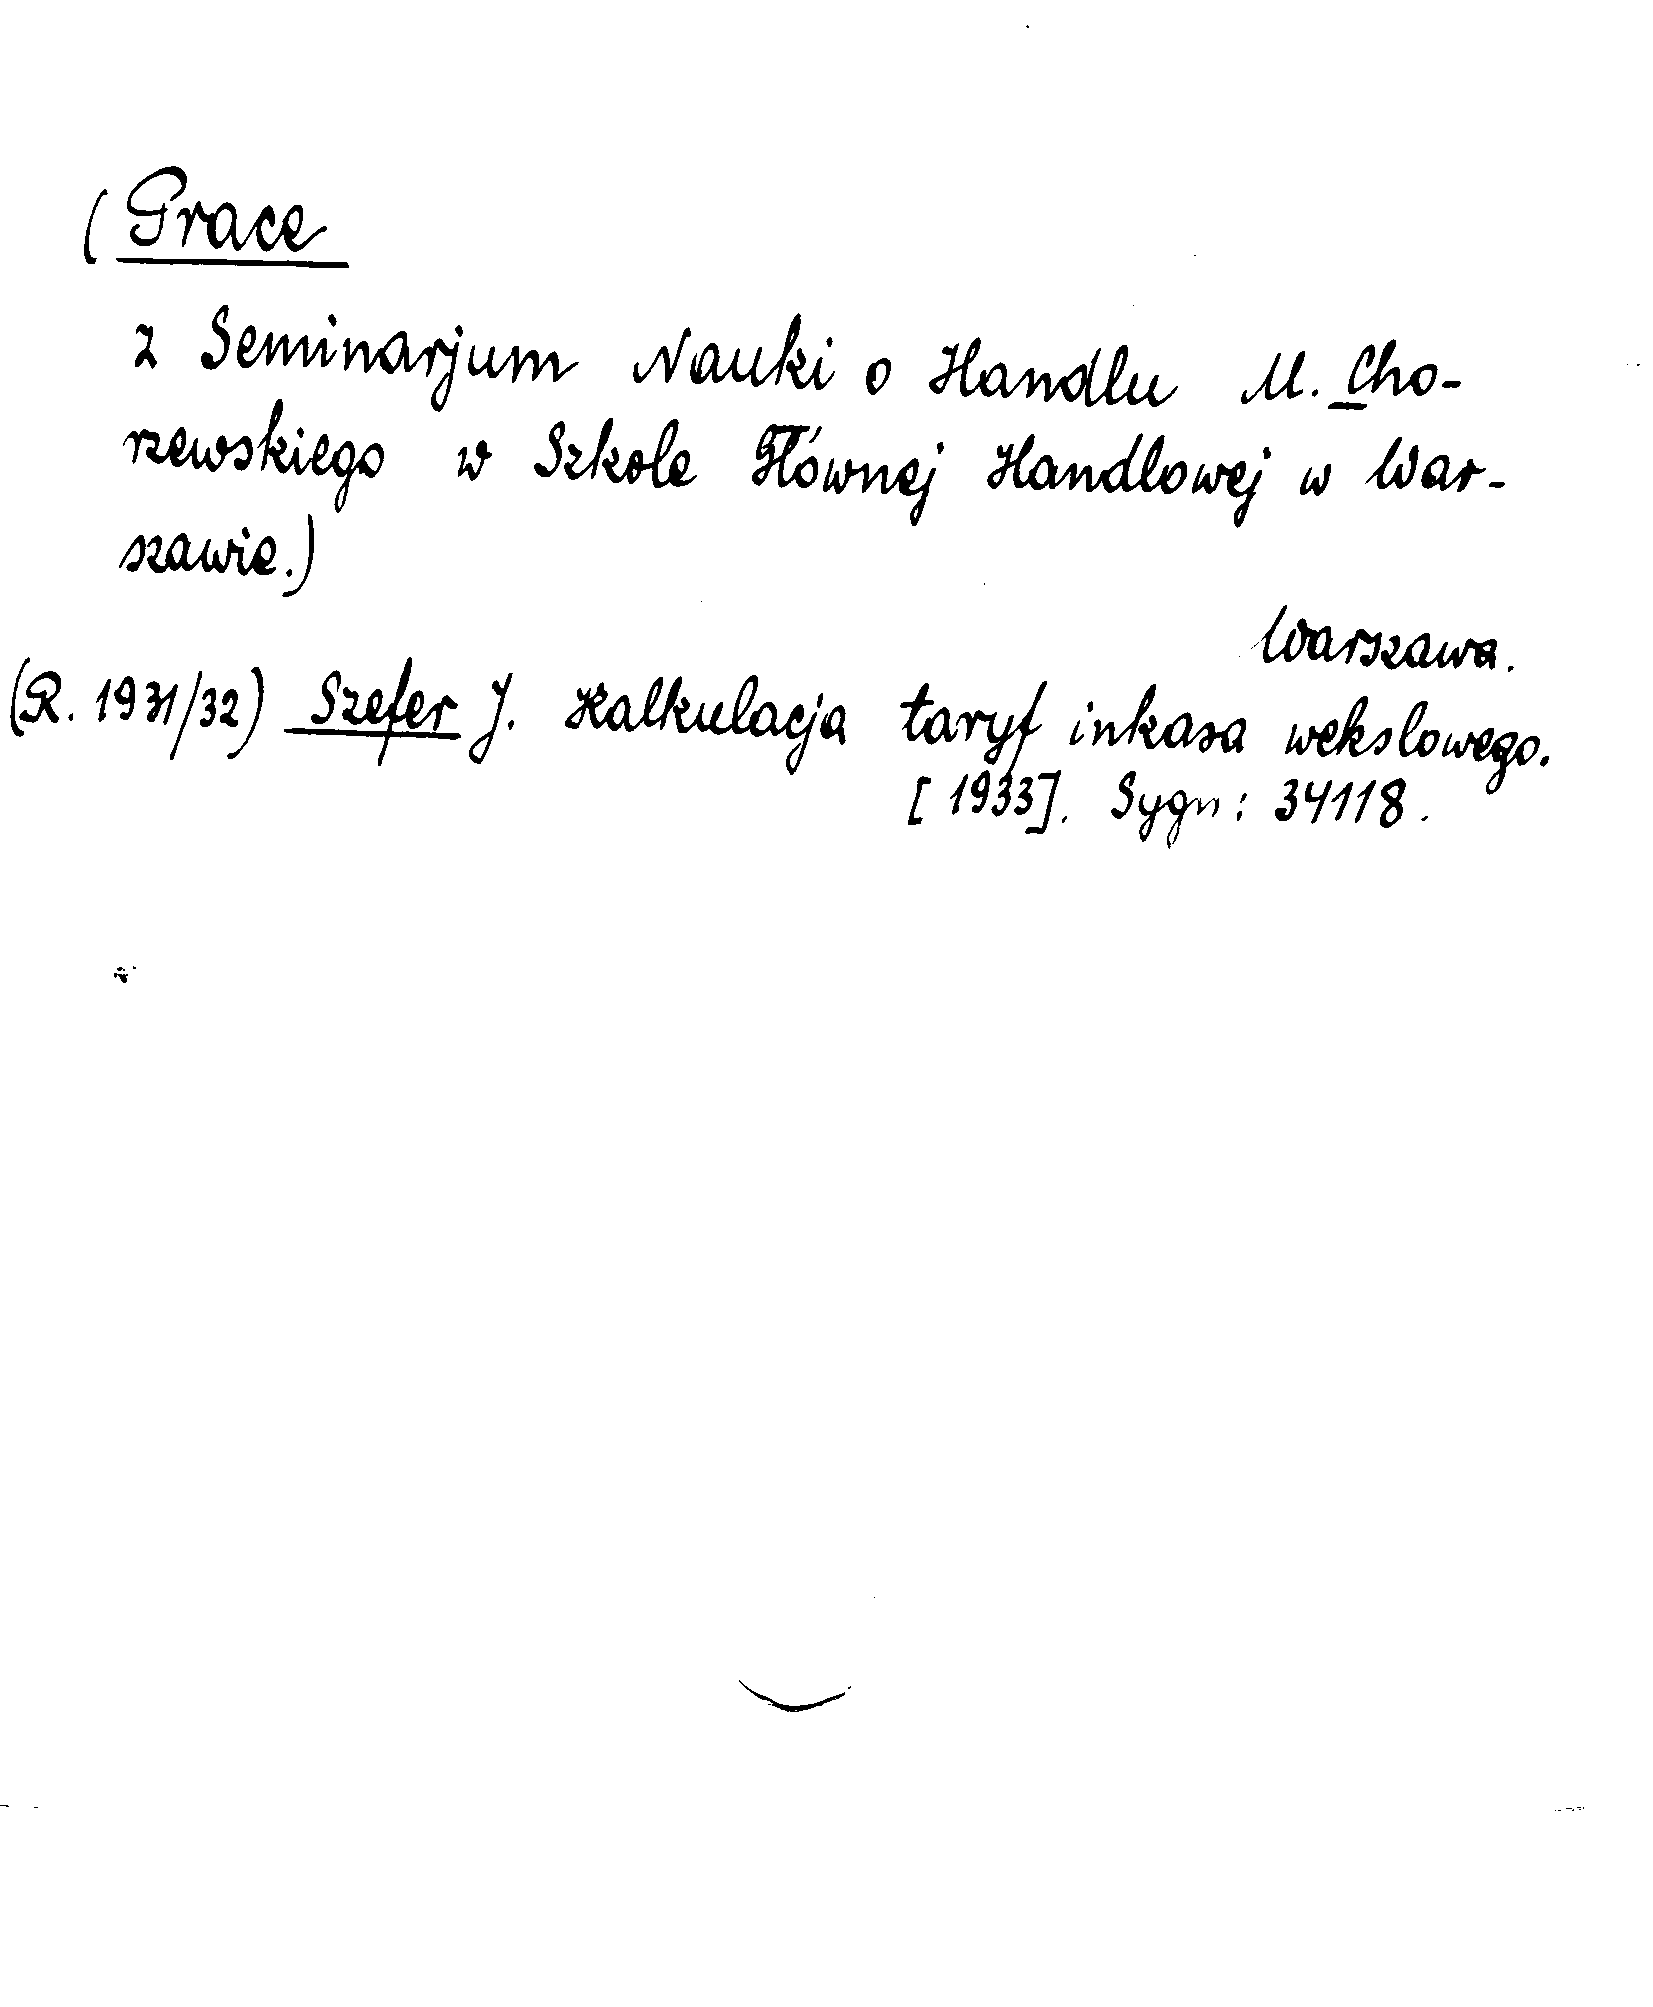 (Prace
z Seminarjum Nauki o Handlu M. Cho-
rzewskiego w Szkole Głównej Handlowej w War-
szawie.)
Warszawa.
(R. 1931/32) Szefer J. Kalkulacja taryf inkasa wekslowego.
[1933]. Sygn: 34118.